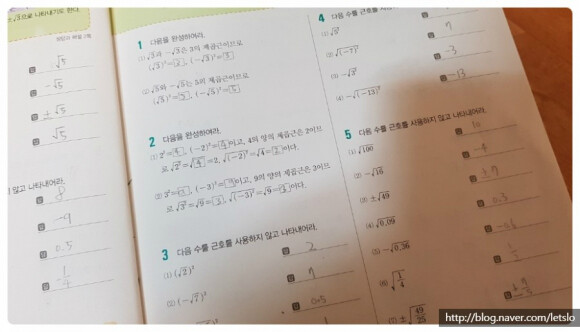 ±√3으로 나타내기도 한다.
√5
-√5
±√5
√5
지 않고 나타내어라.
8
-9
0.5
1/4
1 다음을 완성하여라.
(√3)²=3, (-√3)²=3
(2) √5와 -√5는 5의 제곱근이므로
(√5)²=5, (-√5)²=5
2 다음을 완성하여라.
(1) 2²=4, (-2)²=4이고, 4의 양의 제곱근은 2이므
로 √2²=√4=2, √(-2)²=√4=2이다.
이고, 9의 양의 제곱근은 3이므
로 √3²=√9=3, √(-3)²=√9=3이다.
3 다음 수를 근호를 사용하지 않고 나타내어라.
(1) (√2)² 답 2
(2) 답
답 0.5
4 다음 수를 근호를
(1) 답
(2) √(-7)² 답
(3) 답 -3
(4) -√(-13)² 답 -13
5 다음 수를 근호를 사용하지 않고 나타내어라.
(1) √100 답 10
(2) -√16 답 -4
(3) ±√49 답
(4) √0.09 답 0.3
(5) -√0.36 답 -0.6
(6) √1/4 답 1/2
(7) ±√49/25 답
http://blog.naver.com/letslo